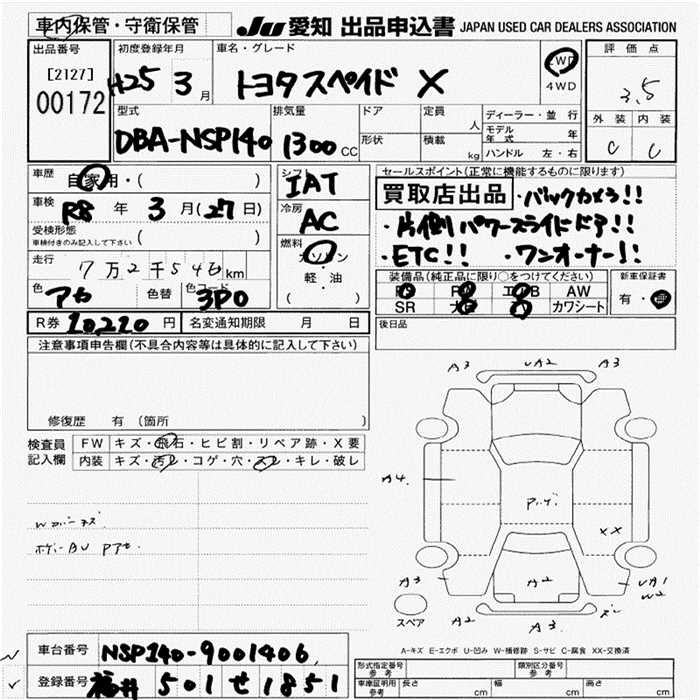 車内保管・守衛保管
JU 愛知 出品申込書 JAPAN USED CAR DEALERS ASSOCIATION
出品番号
[2127]
00172
初度登録年月
H25 3 月
車名・グレード
トヨタスペイド X
2WD
4WD
評価点
3.5
外装 内装
C C
型式
DBA-NSP140
排気量
1300 CC
ドア
形状
定員 人
積載 kg
ディーラー・並行
モデル年式 年
ハンドル 左・右
車歴 自家用・( )
車検 R8 年 3 月(27日)
受検形態
車検付きのみ記入して下さい ( )
走行 7万2千54 km
色 アカ 色替 色コード 3P0
シフト
IAT
冷房
AC
燃料
ガソリン
・
軽・油
( )
セールスポイント(正常に機能するものに限ります)
買取店出品 ・バックカメラ!!
・片側パワースライドドア!!
・ETC!! ・ワンオーナー!!
装備品(純正品に限り○をつけてください)
AW
SR カワシート
新車保証書
有・
R券 10,210 円 名変通知期限 月 日
後日品
注意事項申告欄(不具合内容等は具体的に記入して下さい)
修復歴 有(箇所 )
検査員
記入欄
FW キズ・飛石・ヒビ割・リペア跡・X要
内装 キズ・汚レ・コゲ・穴・スレ・キレ・破レ
A3 UA2 A3
A4
XX
A3 A2 UA1
W2
A2 A3
スペア
A-キズ E-エクボ U-凹み W-補修跡 S-サビ C-腐食 XX-交換済
車台番号 NSP140-9001406
登録番号 福井 501 せ 1851
形式指定番号
参考
類別区分番号
参考
車庫証明用
参考
長さ cm 幅 cm 高さ cm